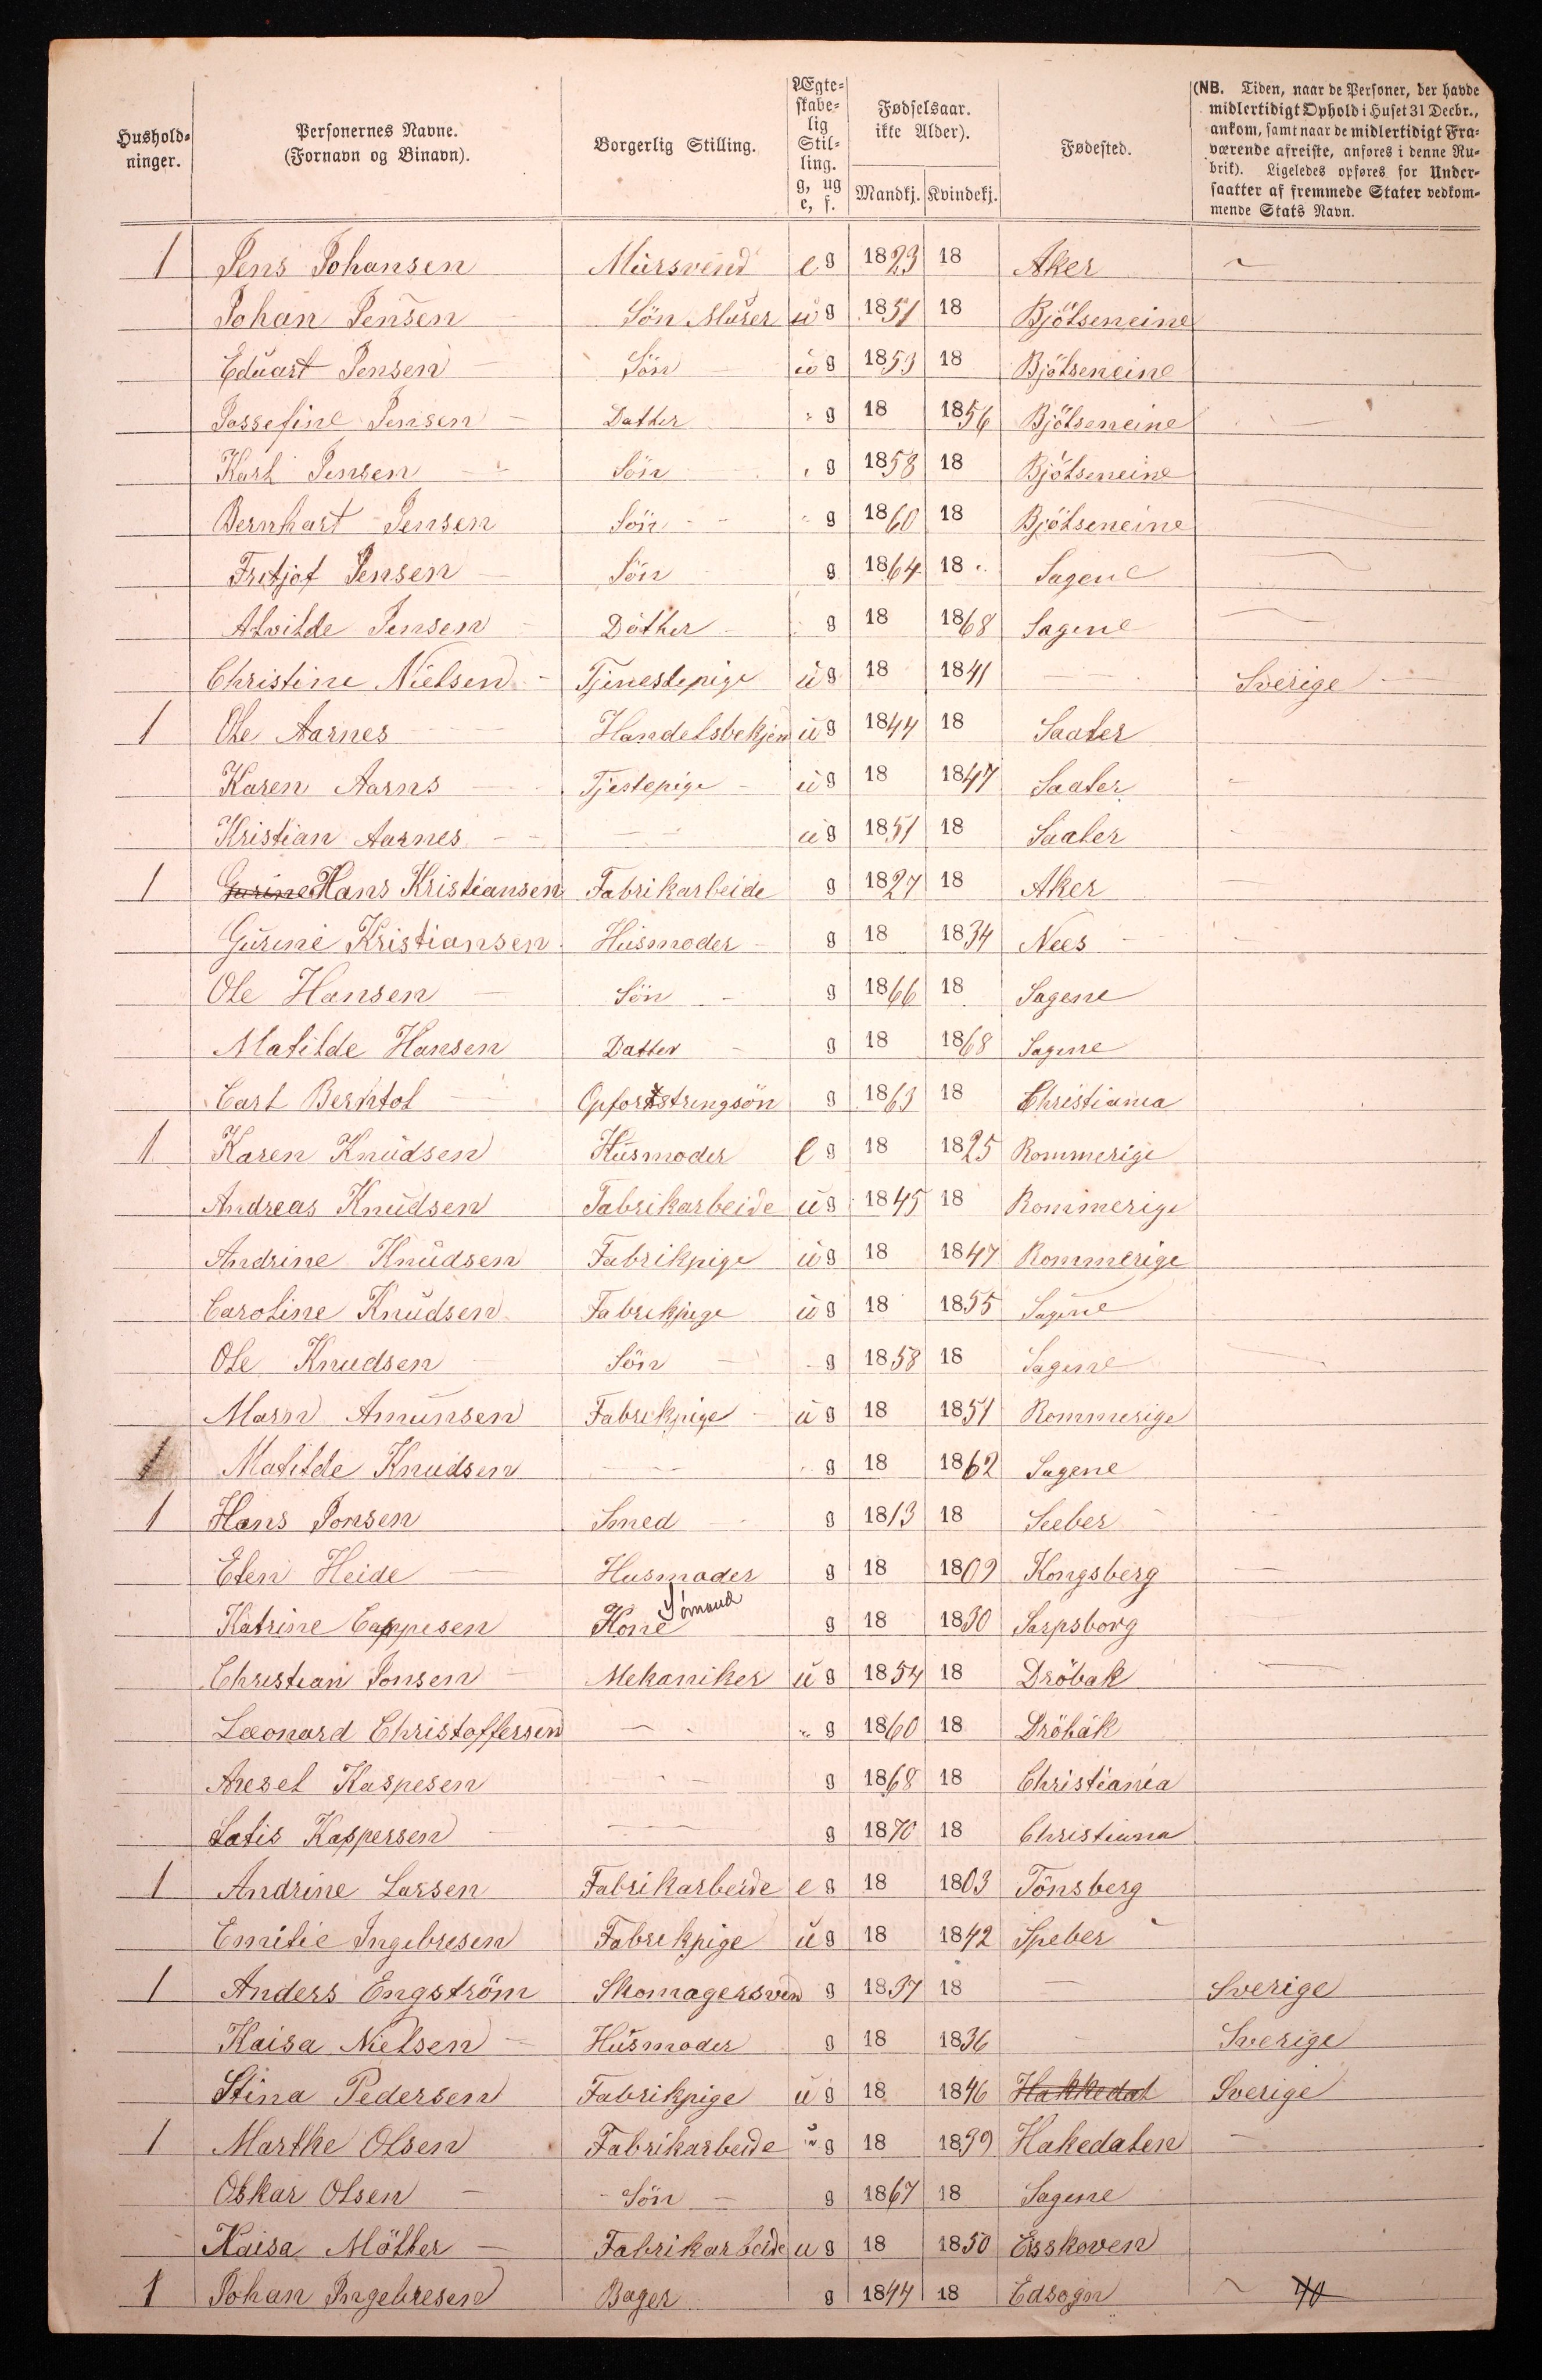 Hushold-ninger. Personernes Navne. (Fornavn og Binavn). Borgerlig Stilling. Ægte-skabe-lig Stil-ling. g, ug e, f. Fødselsaar. ikke Alder). Mandkj. Kvindekj. Fødested. (NB. Tiden, naar de Personer, der havde midlertidigt Ophold i Huset 31 Decbr., ankom, samt naar de midlertidigt Fra-værende afreiste, anføres i denne Ru-brik). Ligeledes opføres for Under-saatter af fremmede Stater vedkom-mende Stats Navn.
1 Jens Johansen Mursvend e g 1823 18 Aker
Johan Jensen Sön Murer u g 1851 18 Bjölseneine
Eduart Jensen Sön u g 1853 18 Bjölseneine
Jossefine Jensen Datter g 18 1856 Bjölseneine
Karl Jensen Sön g 1858 18 Bjölseneine
Bernhart Jensen Sön g 1860 18 Bjölseneine
Fritjof Jensen Sön g 1864 18 Sagene
Alvilde Jensen Dother g 18 1868 Sagene
Christine Nielsen Tjenestepige u g 18 1841 Sverige
1 Ole Aarnes Handelsbekjen u g 1844 18 Saaler
Karen Aarns Tjestepige u g 18 1847 Saaler
Kristian Aarnes u g 1851 18 Saaler
1 Gurine Hans Kristiansen Fabrikarbeide g 1827 18 Aker
Gurine Kristiansen Husmoder g 18 1834 Nees
Ole Hansen Sön g 1866 18 Sagene
Matilde Hansen Datter g 18 1868 Sagene
Carl Berntol g 1863 18 Christiania
1 Karen Knudsen Husmoder e g 18 1825 Rommerige
Andreas Knudsen Fabrikarbeide u g 1845 18 Rommerige
Andrine Knudsen Fabrikpige u g 18 1847 Rommerige
Caroline Knudsen Fabrikpige u g 18 1855 Sagene
Ole Knudsen Sön g 1858 18 Sagene
Marn Amunsen Fabrikpige u g 18 1851 Rommerige
Matilde Knudsen g 18 1862 Sagene
1 Hans Jonsen Smed g 1813 18 Seeber
Elen Heide Husmoder g 18 1809 Kongsberg
Katrine Cappesen Kone Sömand g 18 1830 Sarpsborg
Christian Jonsen Mekaniker u g 1854 18 Dröbak
Leonard Christoffersen g 1860 18 Dröbak
Axesel Kaspesen g 1868 18 Christiania
Latis Kaspersen g 1870 18 Christiana
1 Andrine Larsen Fabrikarbeide e g 18 1803 Tönsberg
Emilie Ingebresen Fabrikpige u g 18 1842 Speber
1 Anders Engström Skomagersven g 1837 18 Sverige
Kaisa Nielsen Husmoder g 18 1836 Sverige
Stina Pedersen Fabrikpige u g 18 1846 Hakkedal Sverige
1 Marthe Olsen Fabrikarbeide u g 18 1839 Hakedalen
Oskar Olsen Sön g 1867 18 Sagene
Kaisa Möller Fabrikarbeide u g 18 1850 Esskoven
1 Johan Ingebresen Bager g 1844 18 Edsogn 40